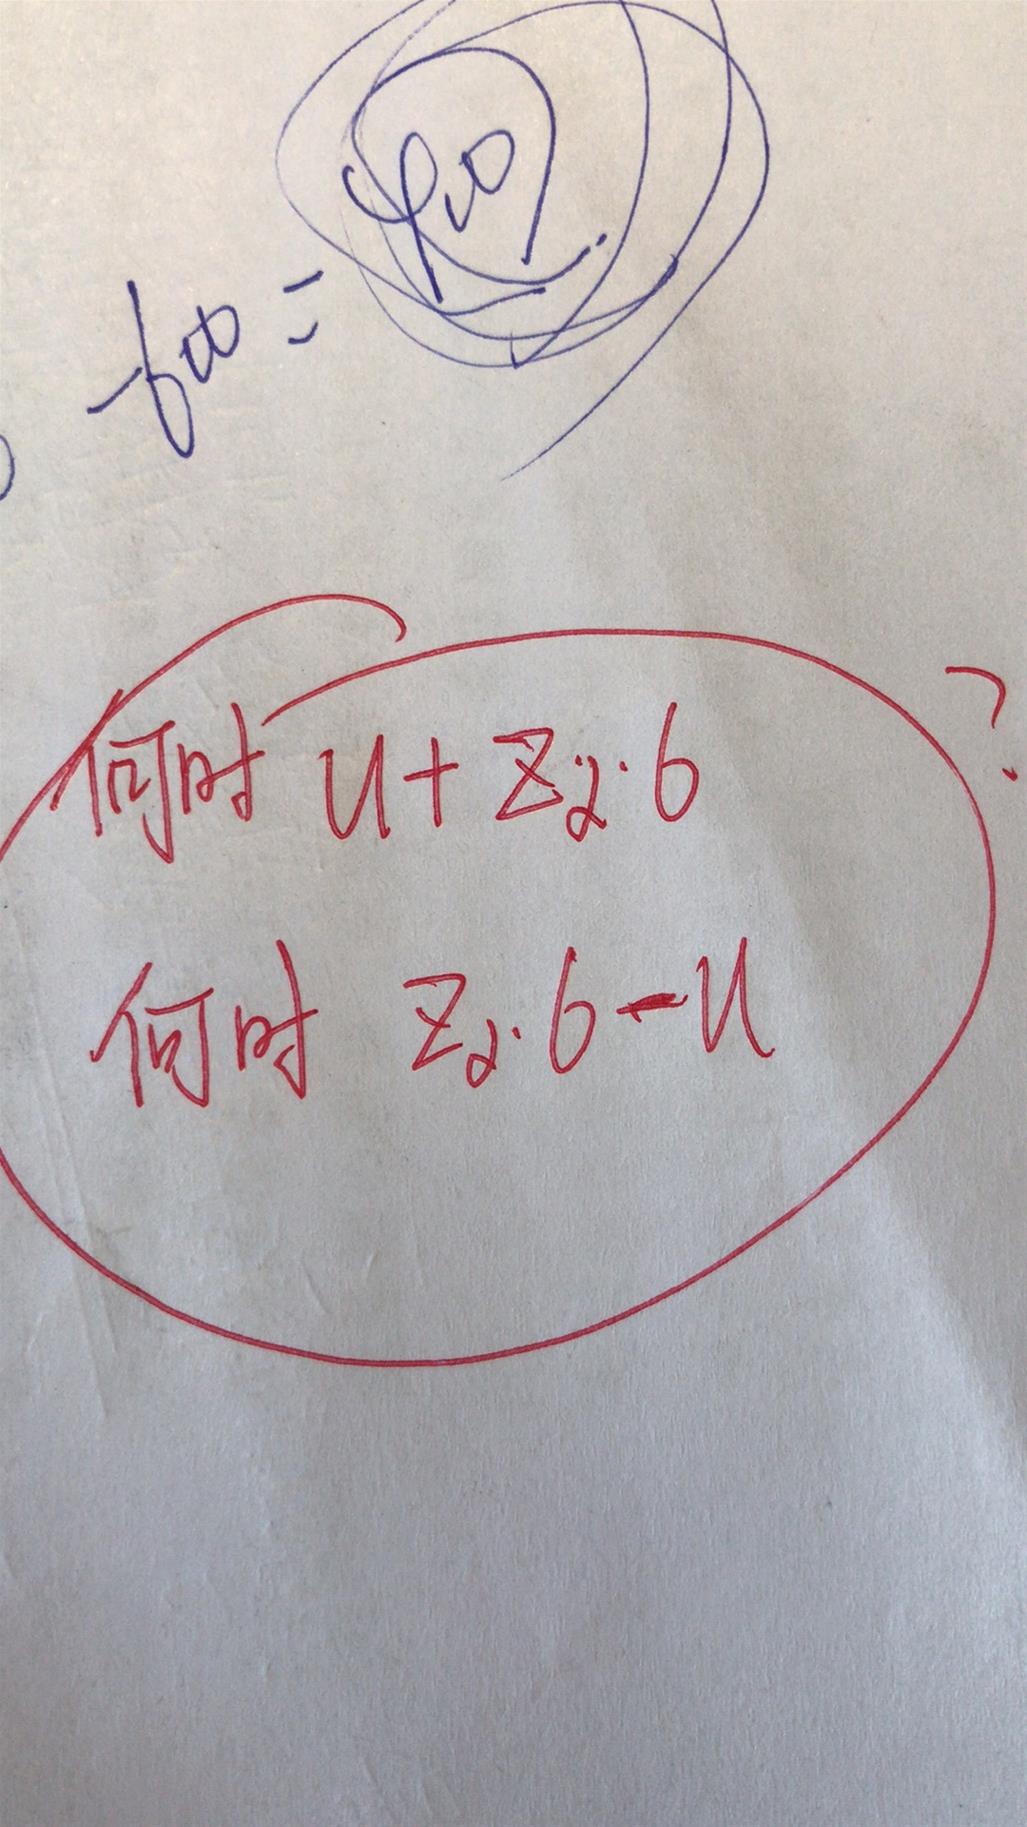 f(x) = φ(x)
何时 u + Zα·6 ?
何时 Zα·6 - u